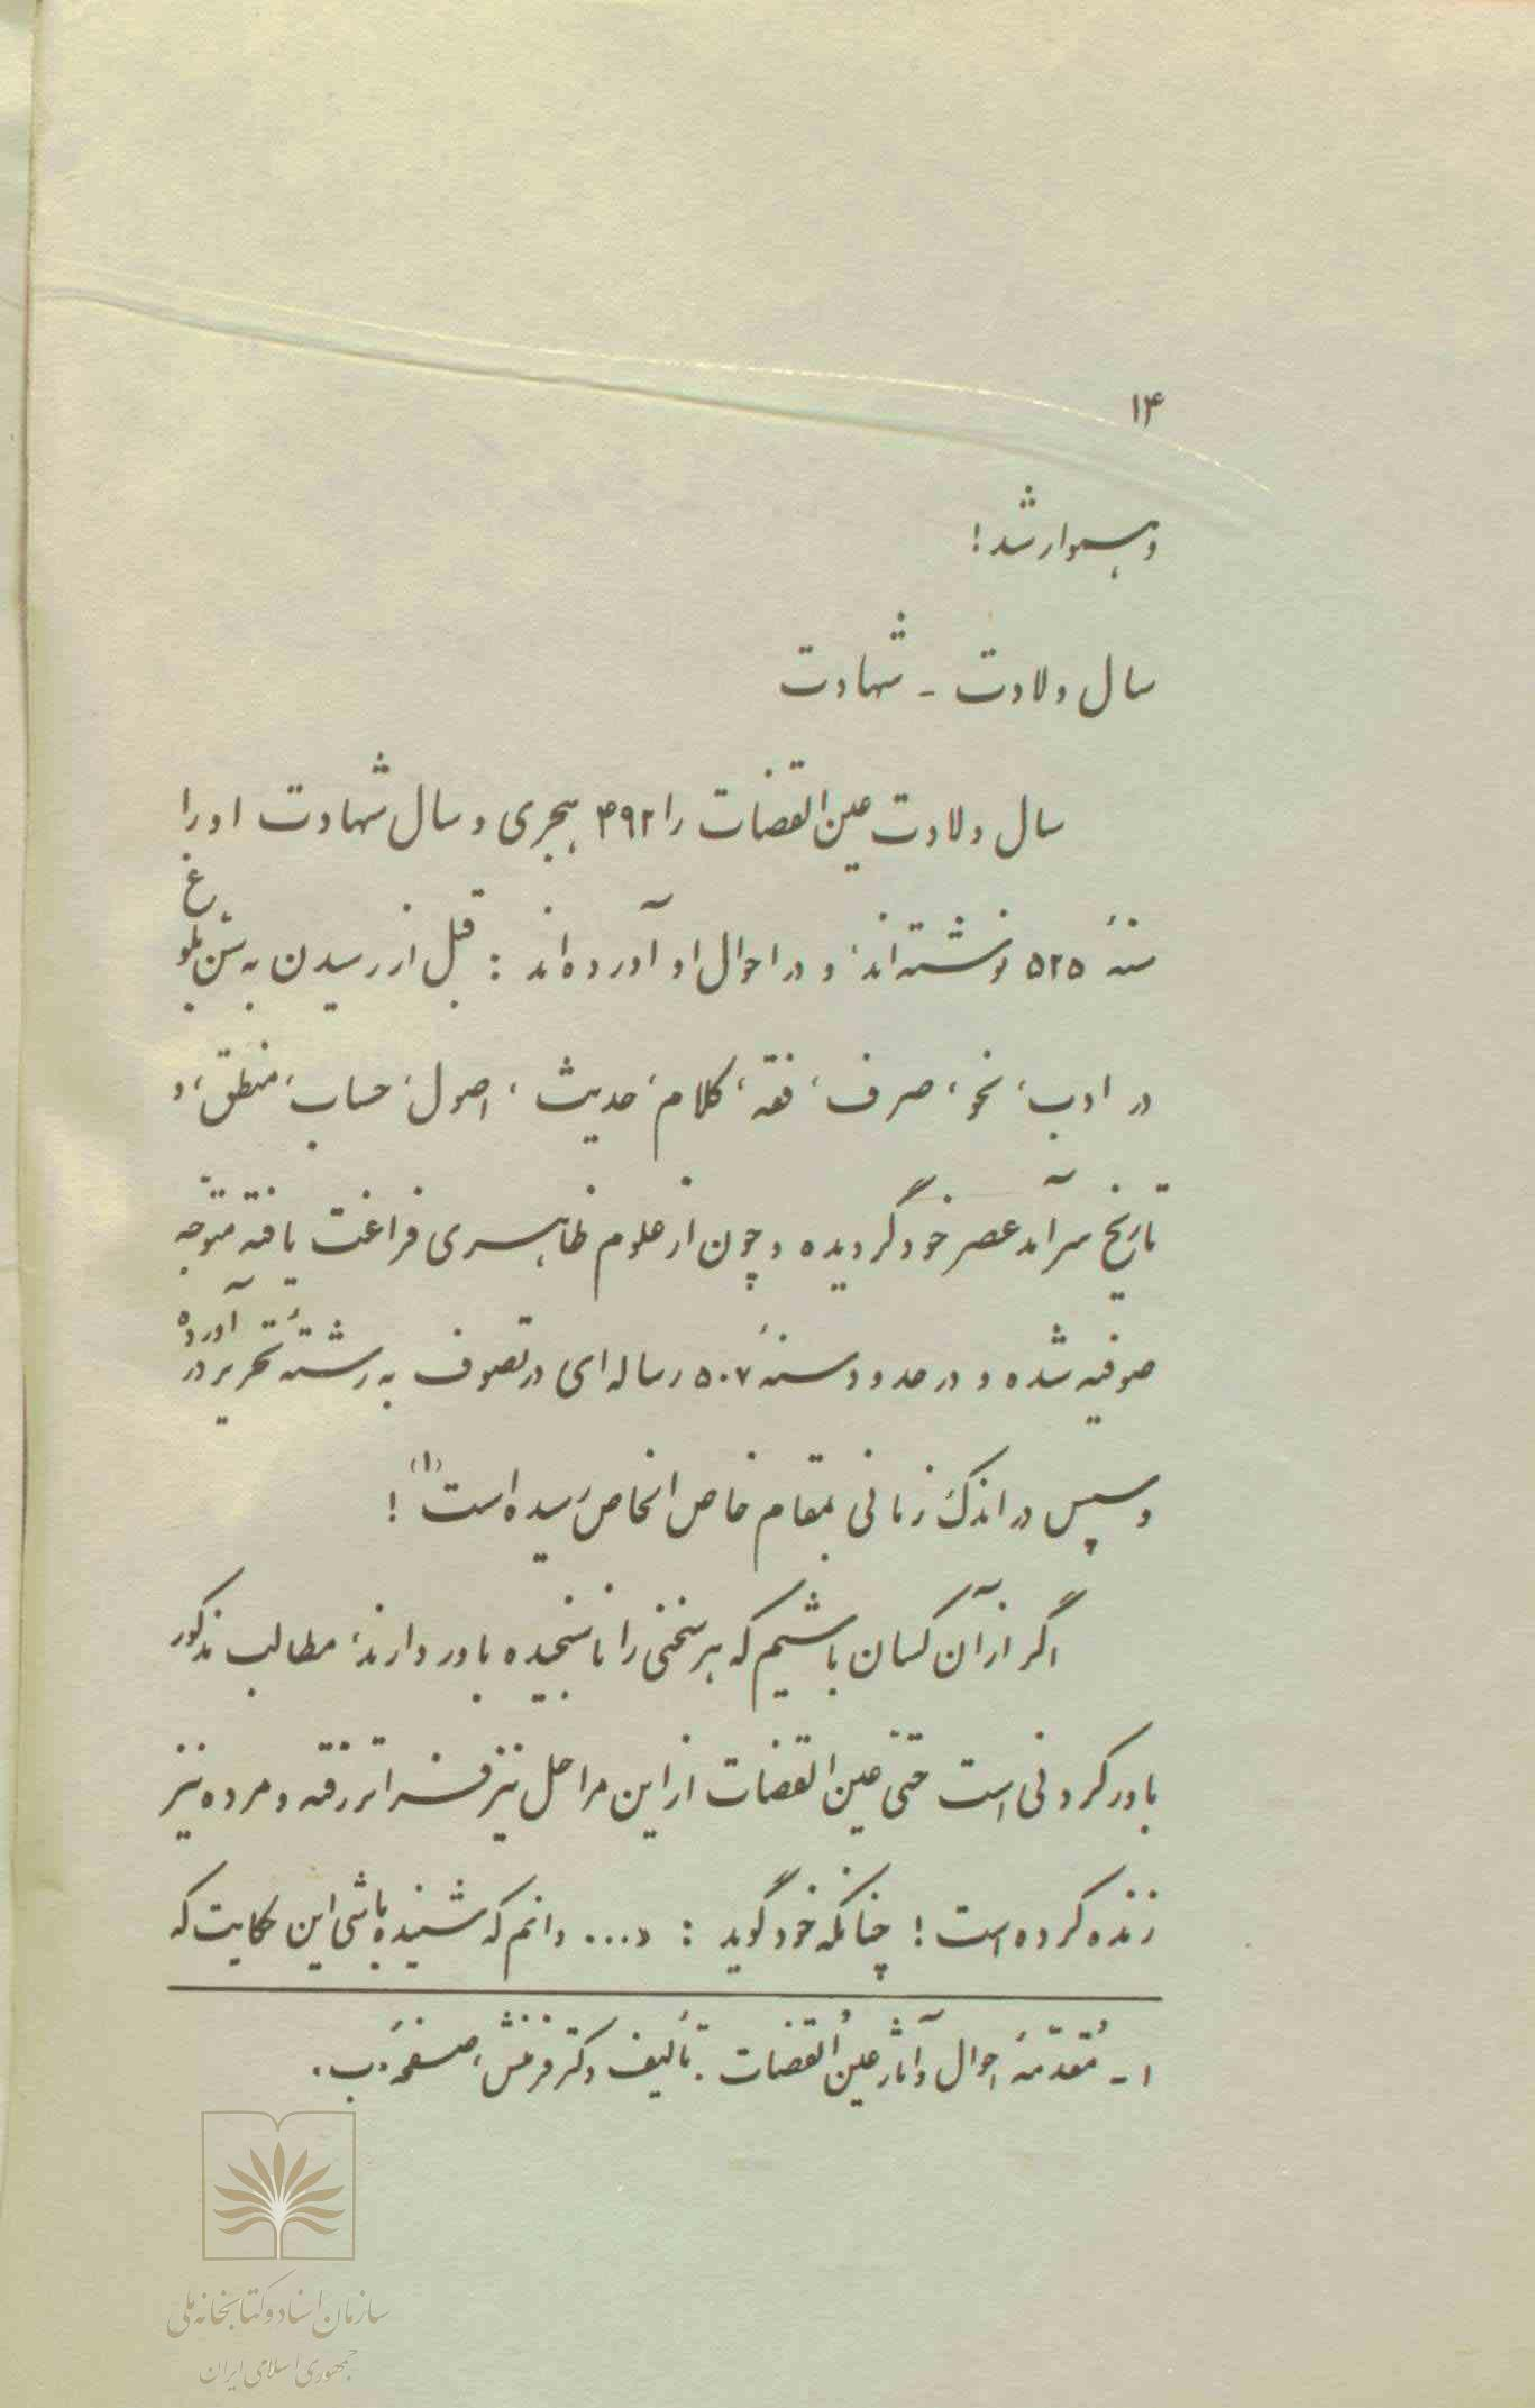 ۱۴
و هموار شد!
سال ولادت - شهادت
سال ولادت عین‌القضات را ۴۹۲ هجری و سال شهادت او را
سنهٔ ۵۲۵ نوشته‌اند، و در احوال او آورده‌اند : قبل از رسیدن به سنّ بلوغ
در ادب، نحو، صرف، فقه، کلام، حدیث، اصول، حساب، منطق، و
تاریخ سرآمد عصر خود گردیده و چون از علوم ظاهری فراغت یافته متوجّه
صوفیه شده و در حدود سنهٔ ۵۰۷ رساله‌ای در تصوف به رشتهٔ تحریر در آورده
و سپس در اندک زمانی بمقام خاص الخاص رسیده است(۱)!
اگر از آن کسان باشیم که هر سخنی را ناسنجیده باور دارند، مطالب مذکور
باور کردنی است حتّی عین القضات از این مراحل نیز فراتر رفته و مرده نیز
زنده کرده است! چنانکه خود گوید : «... دانم که شنیده باشی این حکایت که
۱ - مُقدّمهٔ احوال و آثار عین القضات . تألیف دکتر فرمنش، صفحهٔ ب .
سازمان اسناد و کتابخانه ملی
جمهوری اسلامی ایران